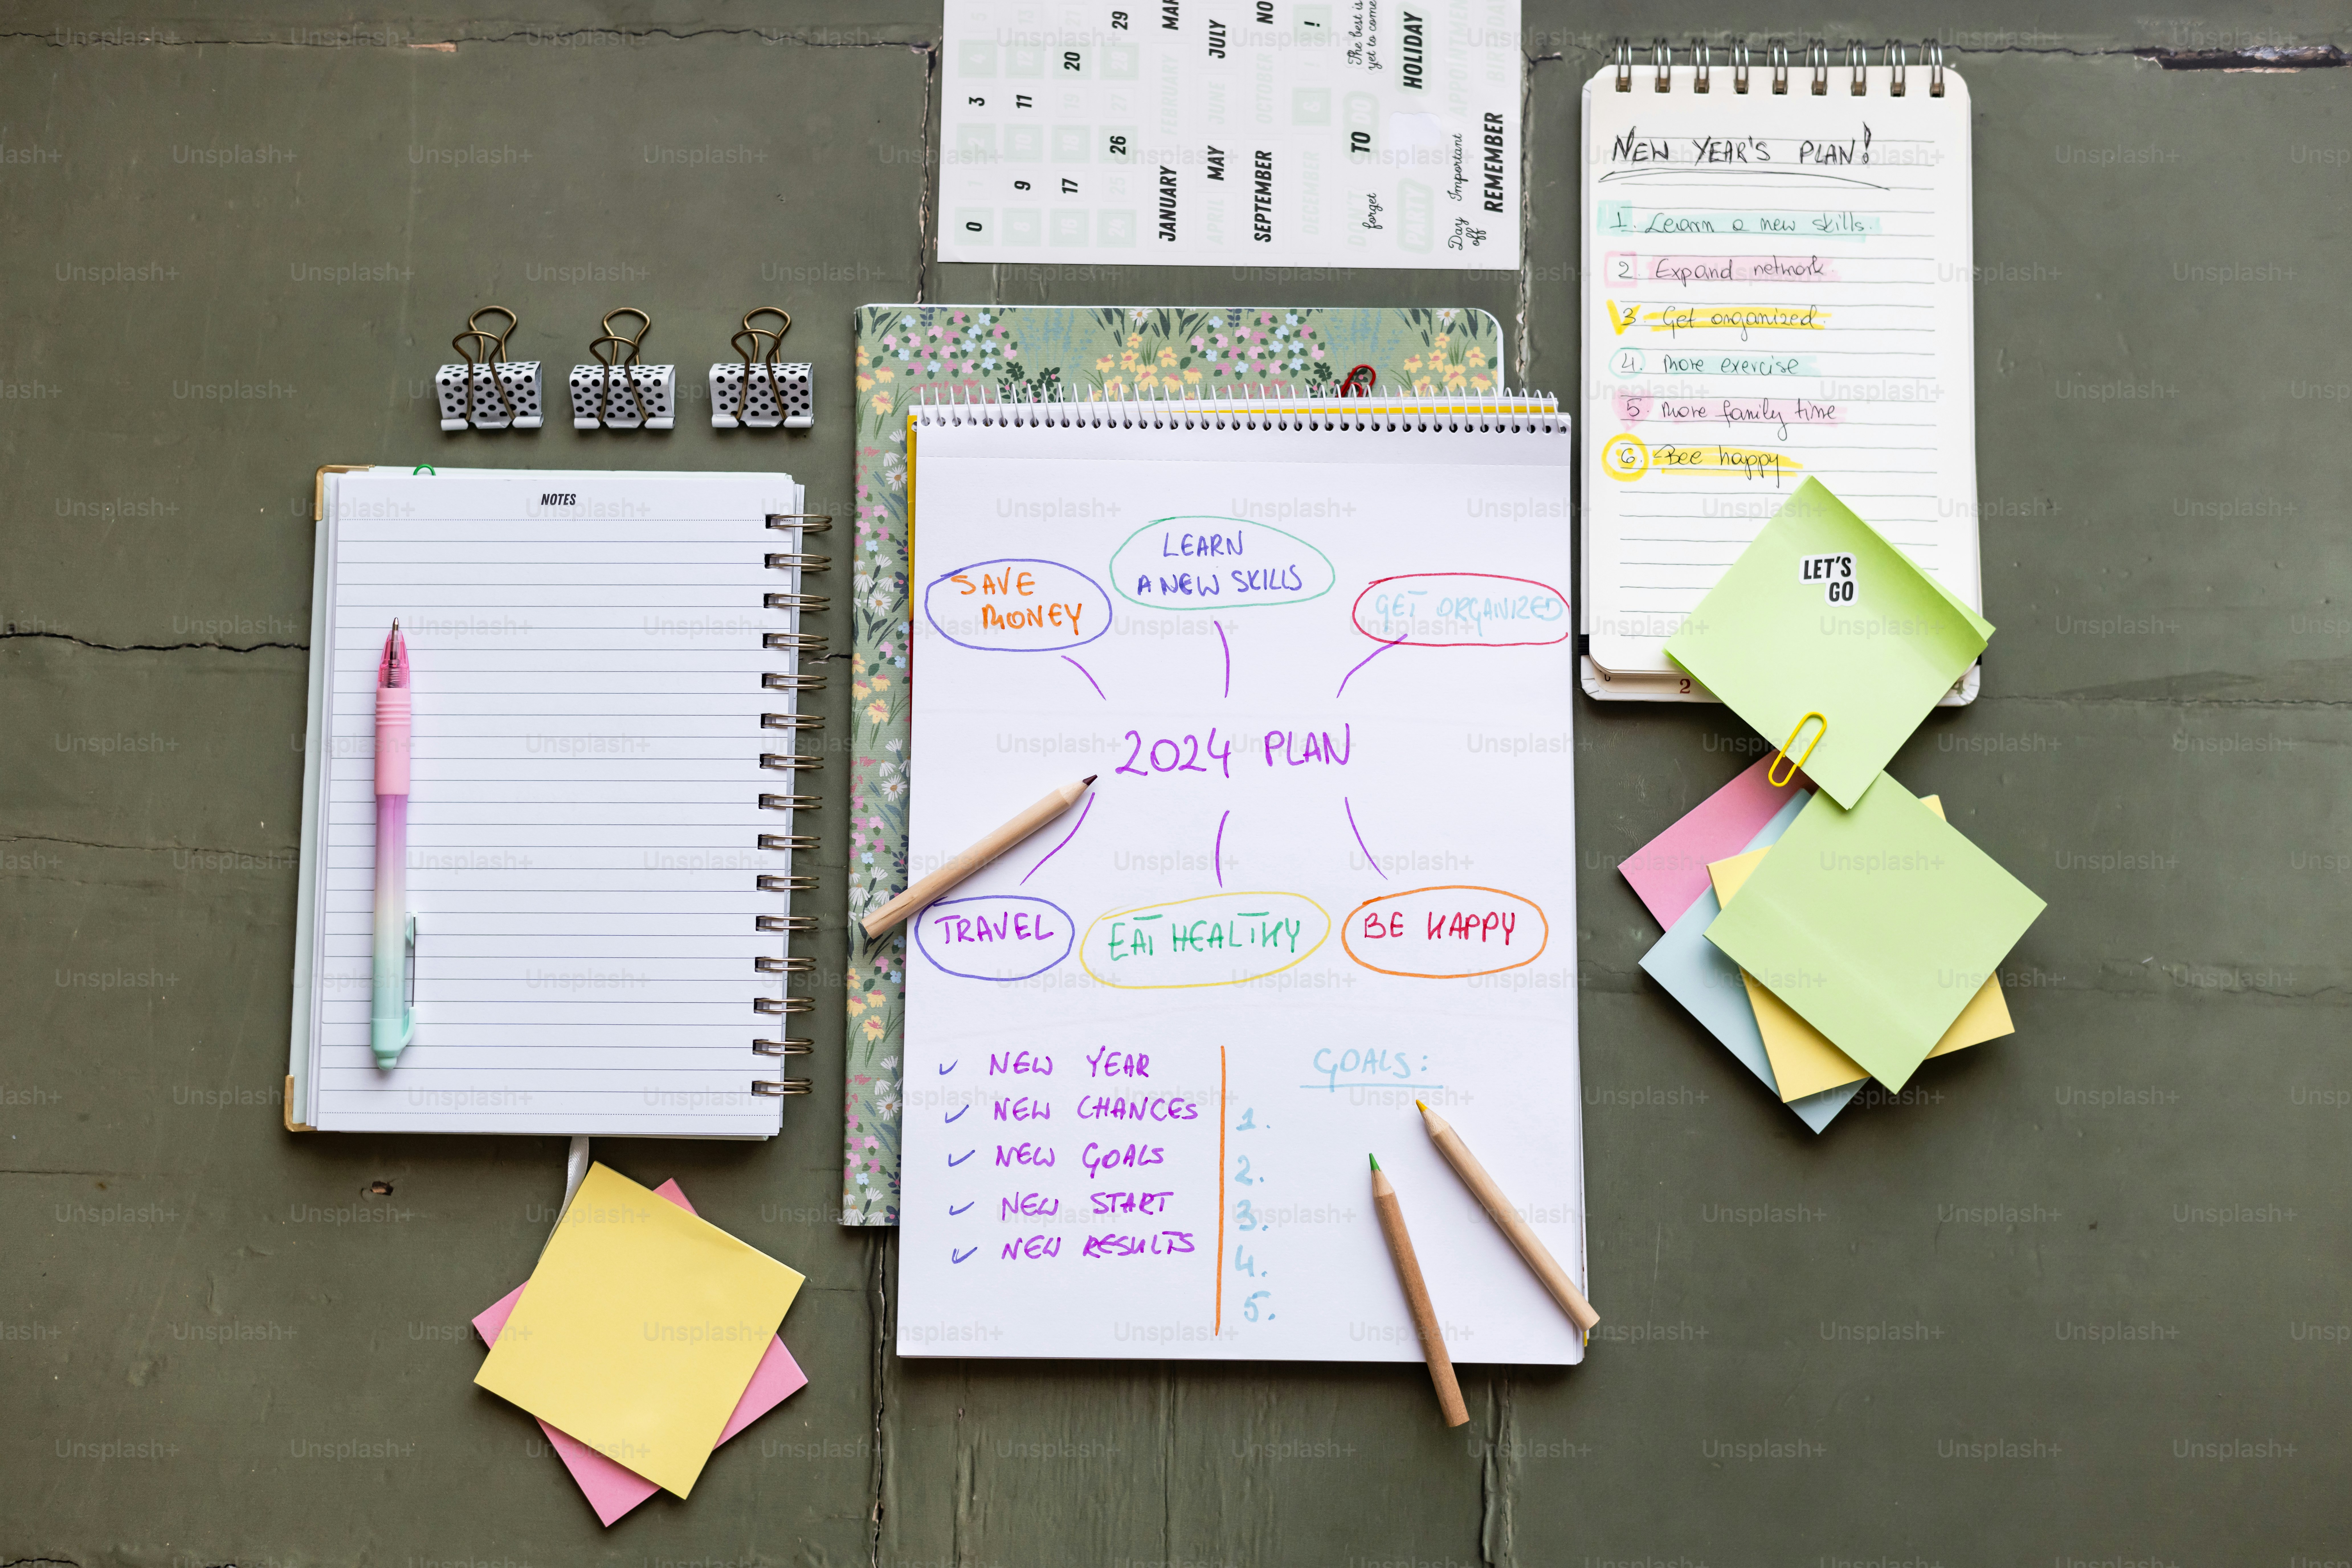 0
3
9
11
17
20
26
29
JANUARY
FEBRUARY
MAR
APRIL
MAY
JUNE
JULY
SEPTEMBER
OCTOBER
NO
DECEMBER
!
DON'T
forget
TO
GO
The best is
yet to come
PARTY
HOLIDAY
Day
off
Important
APPOINTMEN
REMEMBER
BIRTHDAY
NEW YEAR'S PLAN!
1. Learn a new skills.
2. Expand network.
3. Get organized.
4. more exercise
5. more family time
6. Bee happy
LET'S
GO
2
NOTES
SAVE
MONEY
LEARN
A NEW SKILLS
GET ORGANIZED
2024 PLAN
TRAVEL
EAT HEALTHY
BE HAPPY
✓ NEW YEAR
✓ NEW CHANCES
✓ NEW GOALS
✓ NEW START
✓ NEW RESULTS
GOALS:
1.
2.
3.
4.
5.
Unsplash+